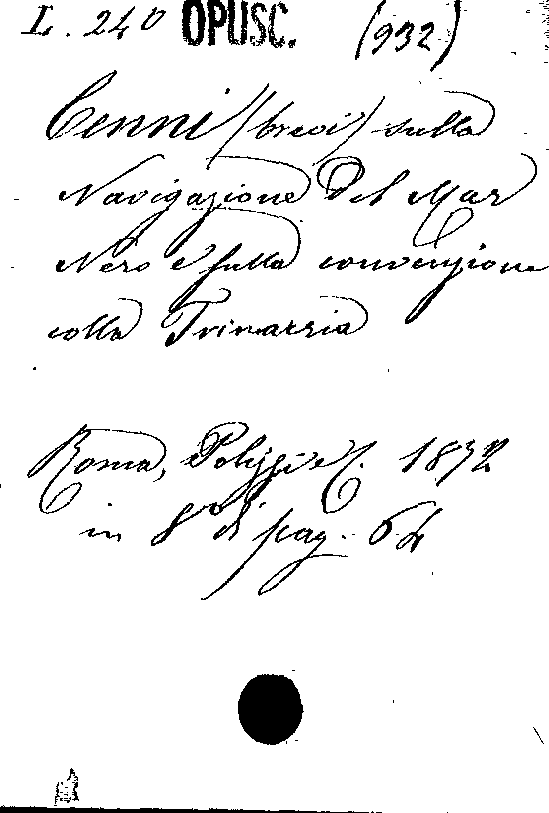 L. 240 OPUSC. (932)
Cenni (brevi) sulla
Navigazione Del Mar
Nero e sulla convenzione
colla Trinacria
Roma, Poliggi e C. 1832
in 8° di pag. 64